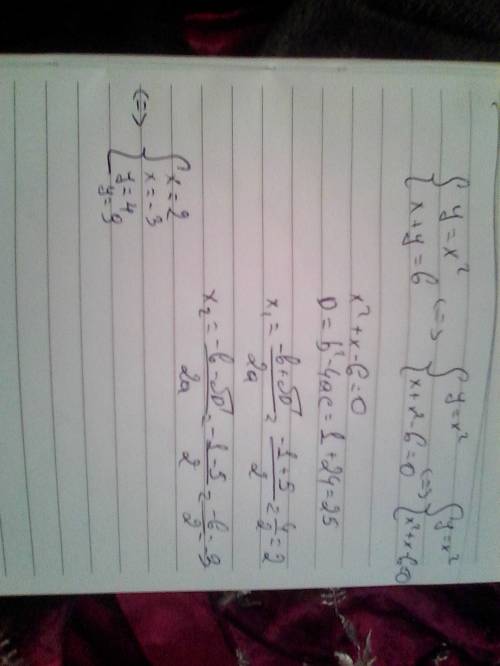 { y = x² <=> { y = x² <=> { y = x²
{ x + y = 6 { x + x² - 6 = 0 { x² + x - 6 = 0
x² + x - 6 = 0
D = b² - 4ac = 1 + 24 = 25
x₁ = (-b + √D)/2a = (-1 + 5)/2 = 4/2 = 2
x₂ = (-b - √D)/2a = (-1 - 5)/2 = -6/2 = -3
<=> { x = 2
{ x = -3
{ y = 4
{ y = 9